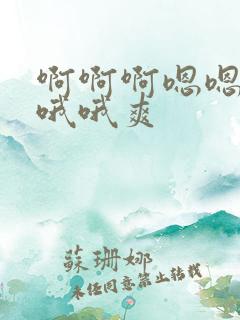 啊啊啊嗯嗯
哦哦爽
蘇珊娜
未经同意禁止转载